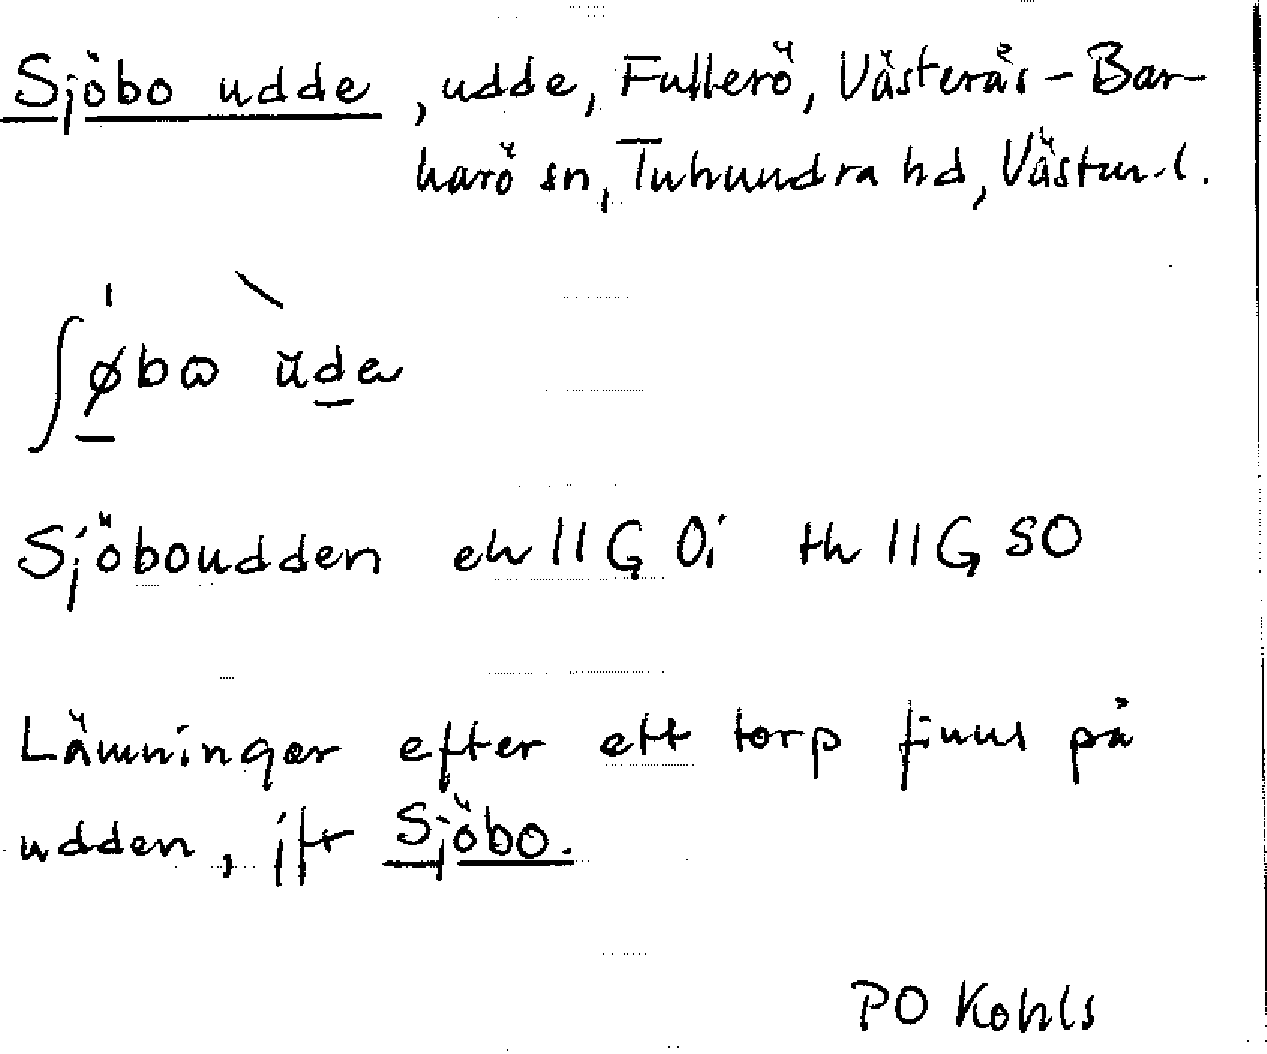 Sjöbo udde, udde, Fullerö, Västerås-Bar-
karö sn, Tuhundra hd, Västm.l.
ʃøbɷ ŭda
Sjöboudden ek 11G 0i tk 11G SO
Lämningar efter ett torp finns på
udden, jfr Sjöbo.
PO Kohls